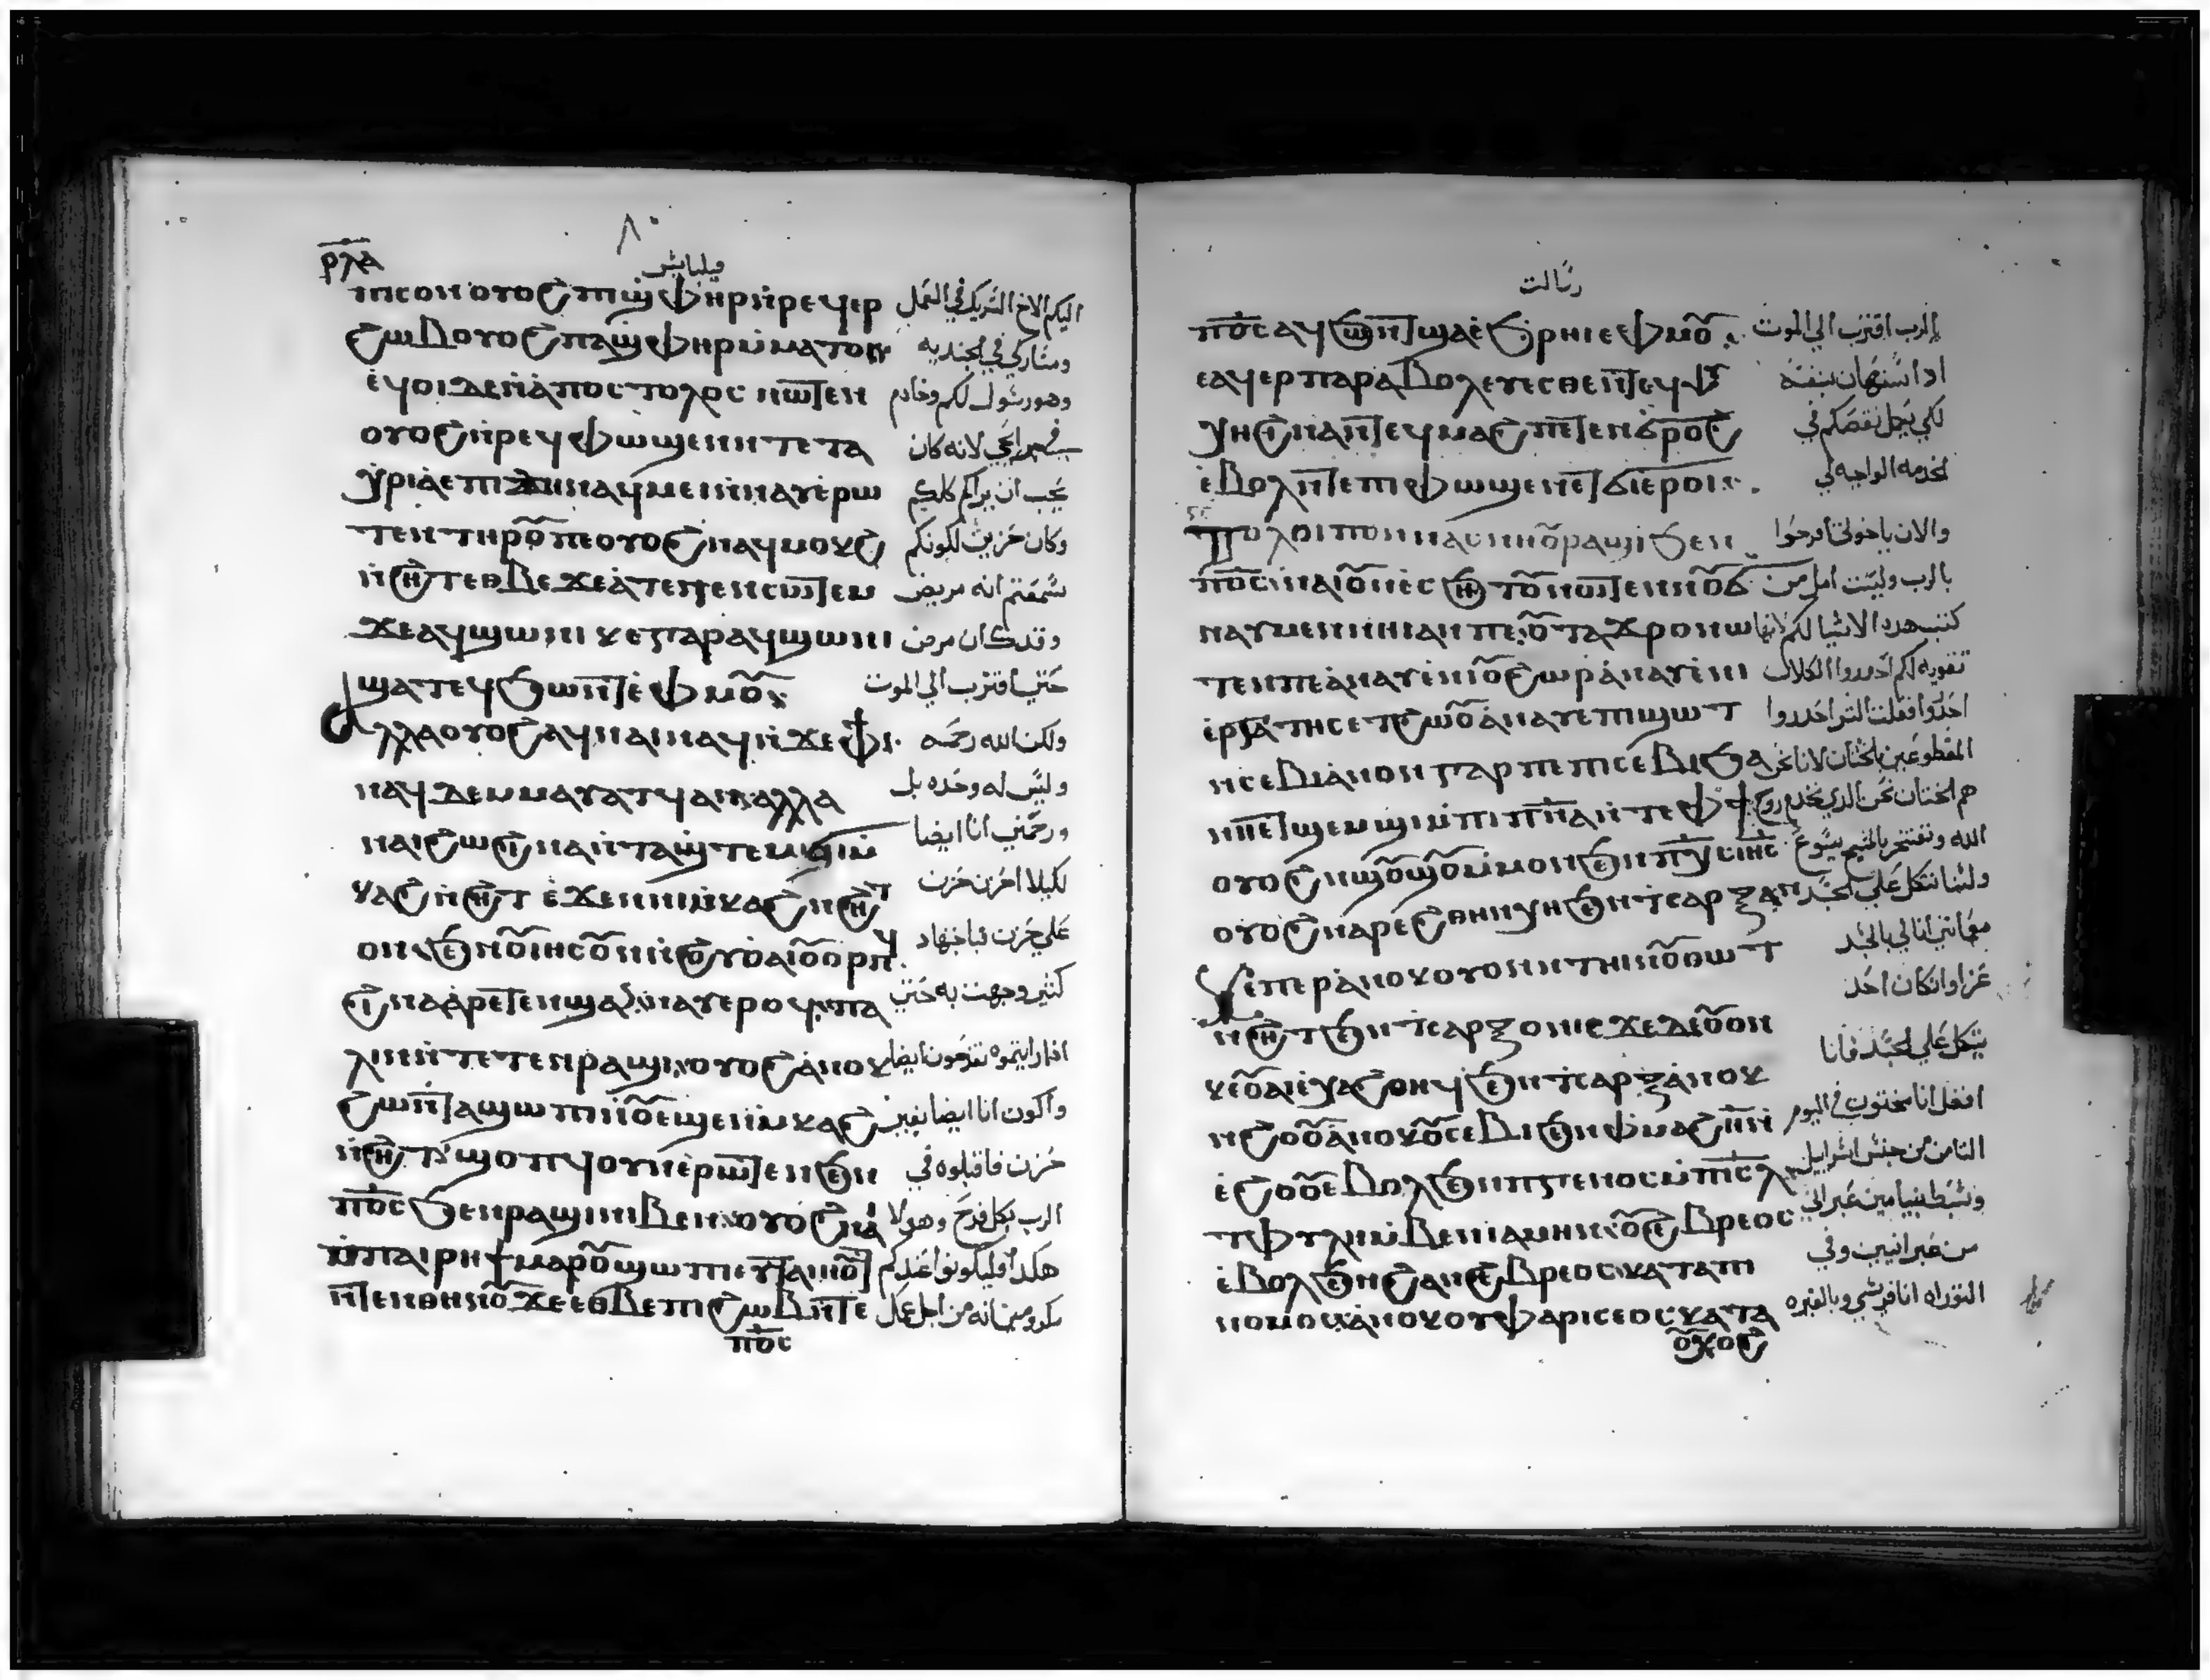 ⲣⲗⲁ
فيلبايس
ⲡⲓⲥⲟⲛ ⲟⲩⲟϩ ⲡⲓϣⲫⲏⲣ ⲛⲣⲉϥⲉⲣ
ϩⲱⲃ ⲟⲩⲟϩ ⲡⲁϣⲫⲏⲣ ⲙⲙⲁⲧⲟⲓ
ⲉϥⲟⲓ ⲇⲉ ⲛⲁⲡⲟⲥⲧⲟⲗⲟⲥ ⲛⲱⲧⲉⲛ
ⲟⲩⲟϩ ⲛⲣⲉϥⲫⲱϣⲉⲛ ⲛⲧⲉ ⲧⲁ
ⲭⲣⲓⲁ ⲉⲡⲓⲇⲏ ⲛⲁϥⲙⲉⲓ ⲛⲛⲁⲩ ⲉⲣⲱ
ⲧⲉⲛ ⲧⲏⲣⲟⲩ ⲡⲉ ⲟⲩⲟϩ ⲛⲁϥⲙⲟⲕϩ
ⲛϩⲏⲧ ⲉⲑⲃⲉ ϫⲉ ⲁⲧⲉⲧⲉⲛⲥⲱⲧⲉⲙ
ϫⲉ ⲁϥϣⲱⲛⲓ ⲕⲉ ⲅⲁⲣ ⲁϥϣⲱⲛⲓ
ϣⲁⲧⲉϥϧⲱⲛⲧ ⲉⲫⲙⲟⲩ
ⲁⲗⲗⲁ ⲟⲩⲟϩ ⲁϥⲛⲁⲓ ⲛⲁϥ ⲛϫⲉ ⲫϯ
ⲛⲁϥ ⲇⲉ ⲙⲙⲁⲩⲁⲧϥ ⲁⲛ ⲁⲗⲗⲁ
ⲛⲁⲓ ϩⲱ ϩⲓⲛⲁ ⲛⲧⲁϣⲧⲉⲙϭⲓ ⲛ
ⲕⲁϩ ⲛϩⲏⲧ ⲉϫⲉⲛ ⲡⲓⲙⲕⲁϩ ⲛϩⲏⲧ
ϩⲓⲛⲁ ⲁⲣⲉⲧⲉⲛϣⲁⲛⲛⲁⲩ ⲉⲣⲟϥ ⲡⲁ
ⲗⲓⲛ ⲛⲧⲉⲧⲉⲛⲣⲁϣⲓ ⲟⲩⲟϩ ⲁⲛⲟⲕ
ϩⲱ ⲛⲧⲁϣⲱⲡⲓ ⲛⲟⲩⲉϣⲉⲛ ⲙⲕⲁϩ
ⲛϩⲏⲧ ϣⲟⲡϥ ⲟⲩⲛ ⲉⲣⲱⲧⲉⲛ ϧⲉⲛ
ⲡⲟⲥ ϧⲉⲛ ⲣⲁϣⲓ ⲛⲓⲃⲉⲛ ⲟⲩⲟϩ ⲛⲁ
ⲙⲡⲁⲓⲣⲏϯ ⲙⲁⲣⲟⲩϣⲱⲡⲓ ⲉⲩⲧⲁⲓⲏⲟⲩⲧ
ⲛⲧⲉⲛ ⲑⲏⲛⲟⲩ ϫⲉ ⲉⲑⲃⲉ ⲡⲓϩⲱⲃ ⲛⲧⲉ
ⲡⲟⲥ
اليكم الاخ الشريك في العمل
ومشاركي في الجنديه
وهو رسول لكم وخادم
يحب ان يراكم كلكم
وكان حزين لكونكم
سمعتم انه مريض
وقد كان مرض
حتي اقترب الي الموت
ولكن الله رحمه
وليس له وحده بل
ورحمني انا ايضا
لكيلا احزن حزن
اذا رايتموه تفرحون ايضا
واكون انا ايضا بغير
حزن فاقبلوه في
الرب بكل فرح وهولا
هكذا فليكونوا عندكم
مكرومين انه من اجل عمل
رسالت
ⲡⲟⲥ ⲁϥϧⲱⲛⲧ ϣⲁ ⲉϧⲣⲏⲓ ⲉⲫⲙⲟⲩ
ⲉⲁϥⲉⲣⲡⲁⲣⲁⲃⲟⲗⲉⲩⲉⲥⲑⲉ ⲛⲧⲉϥⲯ
ⲩⲭⲏ ϩⲓⲛⲁ ⲛⲧⲉϥⲙⲁϩ ⲡⲉⲧⲉⲛϭⲣⲟϩ
ⲉⲃⲟⲗ ⲛⲧⲉ ⲡⲓⲫⲱϣⲉⲛ ⲉⲧϭⲓ ⲉⲣⲟⲓ
ⲡⲟⲥ ⲛⲁⲓ ⲟⲛ ⲉⲥϧⲏⲧⲟⲩ ⲛⲱⲧⲉⲛ ⲛⲟⲩϭ
ⲛⲁⲩ ⲙⲉⲛ ⲛⲏⲓ ⲁⲛ ⲡⲉ ⲟⲩⲧⲁϫⲣⲟ ⲛⲱ
ⲧⲉⲛ ⲡⲉ ⲁⲛⲁⲩ ⲉⲛⲓⲟⲩϩⲱⲣ ⲁⲛⲁⲩ ⲉⲛⲓ
ⲉⲣⲅⲁⲧⲏⲥ ⲉⲧϩⲱⲟⲩ ⲁⲛⲁⲩ ⲉⲡⲓϣⲱⲧ
ⲛⲥⲉⲃⲓ ⲁⲛⲟⲛ ⲅⲁⲣ ⲡⲉ ⲡⲥⲉⲃⲓ ϧⲁ
ⲛⲏ ⲉⲧϣⲉⲙϣⲓ ⲙⲡⲓⲡⲛⲁ ⲛⲧⲉ ⲫϯ
ⲟⲩⲟϩ ⲛϣⲟⲩϣⲟⲩ ⲙⲙⲟⲛ ϧⲉⲛ ⲡⲭⲥ ⲓⲏⲥ
ⲟⲩⲟϩ ⲛⲁⲣⲉ ϩⲑⲏⲛ ⲭⲏ ϧⲉⲛ ϯⲥⲁⲣⲝ ⲁⲛ
ⲕⲉⲡⲉⲣ ⲁⲛⲟⲕ ⲟⲩⲟⲛ ⲛⲧⲏⲓ ⲛⲟⲩⲑⲱⲧ
ⲛϩⲏⲧ ϧⲉⲛ ϯⲥⲁⲣⲝ ⲟⲛ ⲓⲥϫⲉ ⲇⲉ ⲟⲩⲟⲛ
ⲕⲉⲟⲩⲁⲓ ⲉⲭⲁ ϩⲑⲏϥ ϧⲉⲛ ϯⲥⲁⲣⲝ ⲁⲛⲟⲕ
ⲛϩⲟⲩⲟ ⲁⲛⲟⲕ ⲟⲩⲥⲉⲃⲓ ϧⲉⲛ ⲫⲙⲁϩ ⲏ ⲛ
ⲉϩⲟⲟⲩ ⲉⲃⲟⲗ ϧⲉⲛ ⲡⲅⲉⲛⲟⲥ ⲙⲡⲓⲥⲗ
ⲧⲫⲩⲗⲏ ⲙⲃⲉⲛⲓⲁⲙⲏⲛ ⲟⲩϩⲉⲃⲣⲉⲟⲥ
ⲉⲃⲟⲗ ϧⲉⲛ ϩⲁⲛϩⲉⲃⲣⲉⲟⲥ ⲕⲁⲧⲁ ⲡⲓ
ⲛⲟⲙⲟⲥ ⲁⲛⲟⲕ ⲟⲩⲫⲁⲣⲓⲥⲉⲟⲥ ⲕⲁⲧⲁ
ⲟⲩⲭⲟϩ
الرب اقترب الي الموت
لكي يكمل نقصكم في
الخدمه الواجبه لي
والان ياخوتي افرحوا
بالرب وليست امل من
تقويه لكم احذروا الكلاب
احذروا فعلت الشر احذروا
هم الختان نحن الذي نخدم روح
الله ونفتخر بالمسيح يسوع
ولسنا نتكل علي الجسد
مع انني انا لي بالجسد
عزا وان كان احد
يتكل علي الجسد فانا
افضل انا مختون في اليوم
الثامن من جنس اسراييل
وسبط بنيامين عبراني
من عبرانيين وفي
التوراه انا فريسي وبالغيره